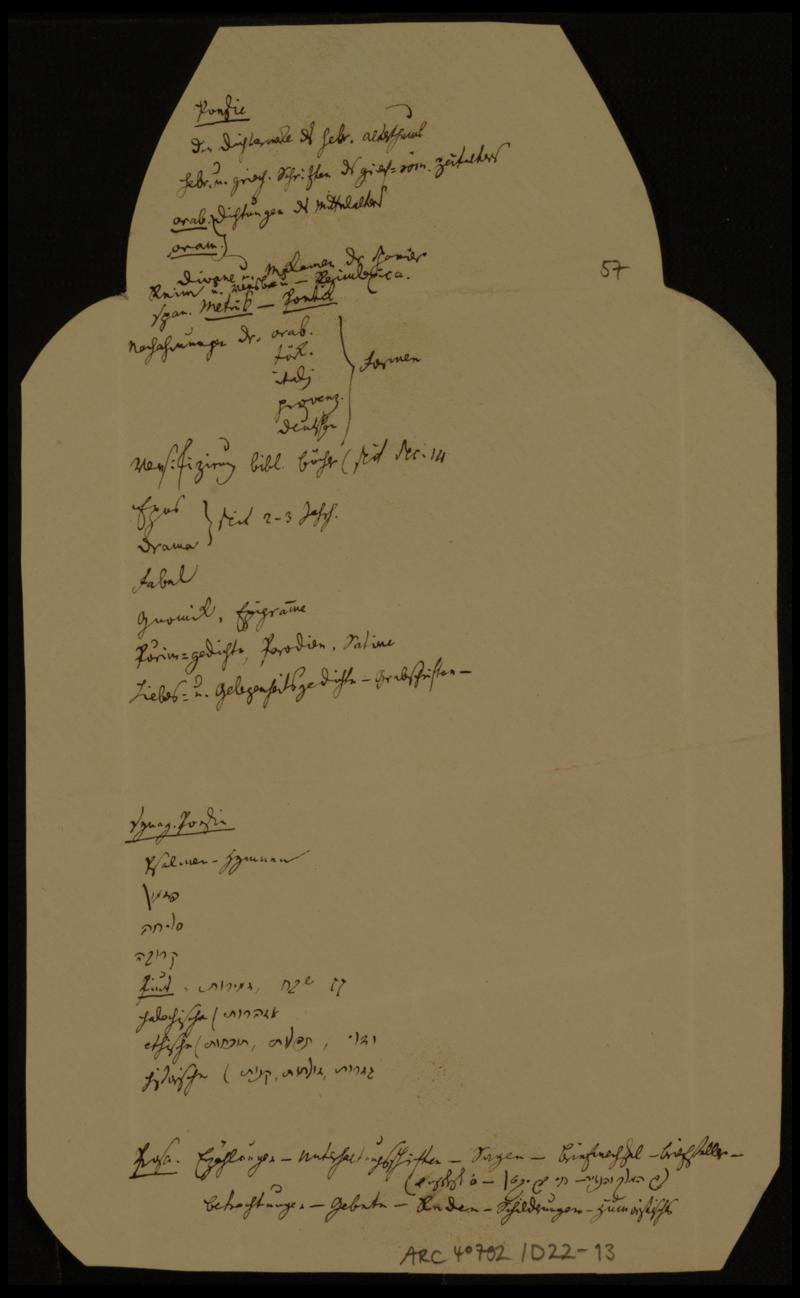 Poesie
Die Dichterwerke des hebr. Alterthums
hebr. u. griech. Schriften des griech=röm. Zeitalters
arab. Dichtungen des Mittelalters
aram.
Divane u. Makamen der Spanier
57
Reim u. Versbau —
Span. Metrik — Poetik
Nachahmungen der arab.
türk.
ital.
provenz.
deutschen
Formen
Versifizirung bibl. Bücher (seit Sec. 14
Epos
Drama
seit 2-3 Jahrh.
Fabel
Gnomik, Epigramme
Purim=gedichte, Parodien, Satire
Liebes= u. Gelegenheitsgedichte — Grabschriften —
Synag. Poesie
Psalmen — Hymnen
פזמון
סליחה
קרובה
Piut. זמירות,
halachische ( אזהרות
ethische ( תוכחות, וידוי
historische ( קינות
Prosa. Erzählungen — Unterhaltungsschriften — Sagen — Briefwechsel — Briefsteller —
Betrachtungen — Gebete — Reden — Schilderungen — Humoristisches
ARC 4° 792 / D22-13